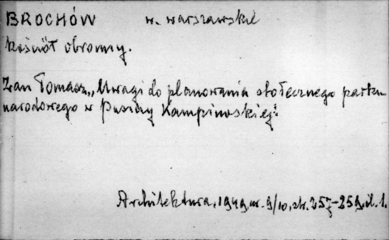 BROCHÓW w. warszawskie
kościół obronny.
Zan Tomasz, „Uwagi do planowania stołecznego parku
narodowego w Puszczy Kampinoskiej"
Architektura, 1949 nr. 9/10, str. 257-259, il. 1.